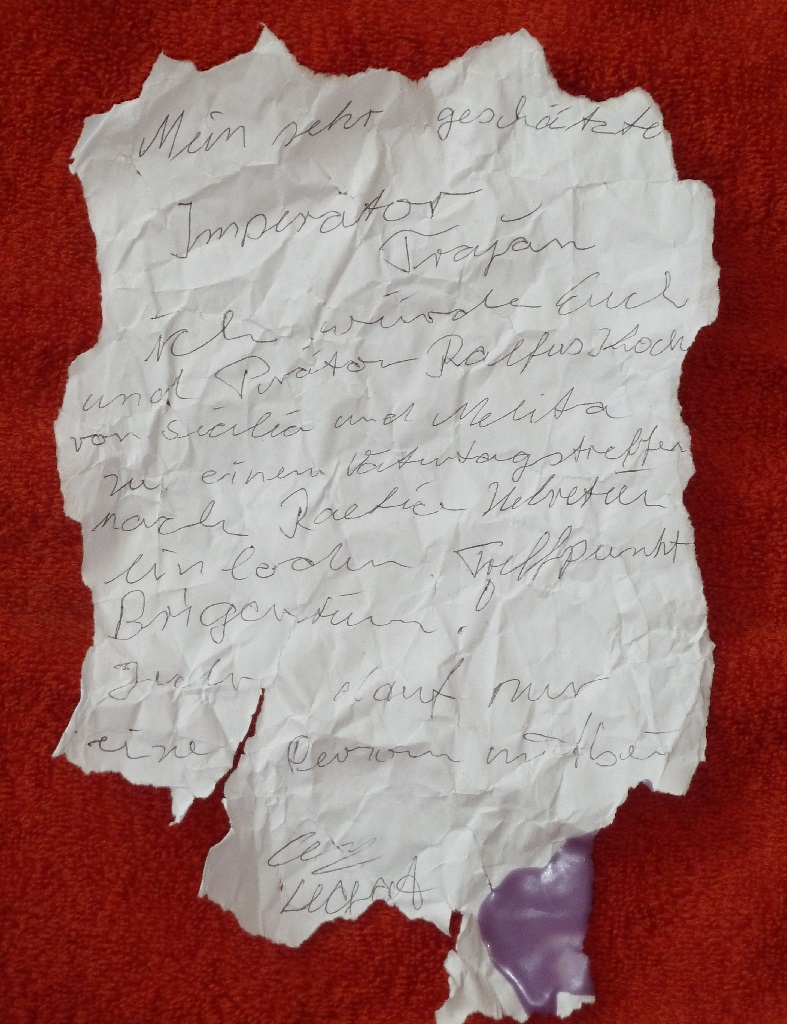 Mein sehr geschätzte
Imperätor
Trajan
ich würde Euch
und Prätor Ralfus Koch
von Sicilia und Melita
zu einem Vatertagstreffen
nach Raetia Helvetien
einladen. Treffpunkt
Brigantium!
Jeder darf nur
eine Person mit